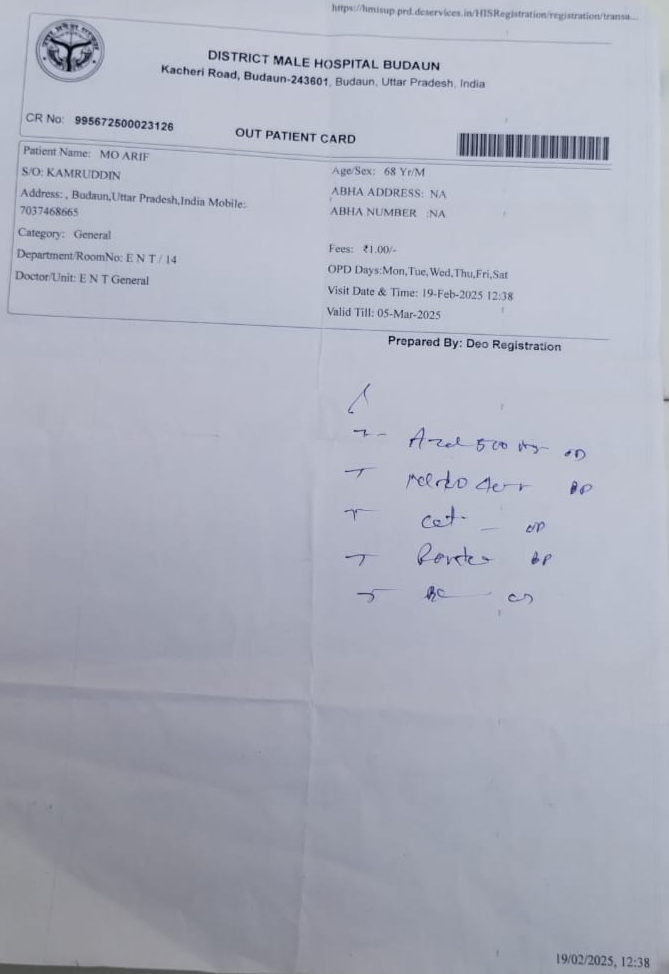 https://hmisup.prd.dcservices.in/HISRegistration/registration/transa...
DISTRICT MALE HOSPITAL BUDAUN
Kacheri Road, Budaun-243601, Budaun, Uttar Pradesh, India
CR No: 995672500023126
OUT PATIENT CARD
Patient Name: MO ARIF
S/O: KAMRUDDIN
Address: , Budaun,Uttar Pradesh,India Mobile:
7037468665
Category: General
Department/RoomNo: E N T / 14
Doctor/Unit: E N T General
Age/Sex: 68 Yr/M
ABHA ADDRESS: NA
ABHA NUMBER :NA
Fees: ₹1.00/-
OPD Days:Mon,Tue,Wed,Thu,Fri,Sat
Visit Date & Time: 19-Feb-2025 12:38
Valid Till: 05-Mar-2025
Prepared By: Deo Registration
500 OD
BD
Cet
BD
19/02/2025, 12:38